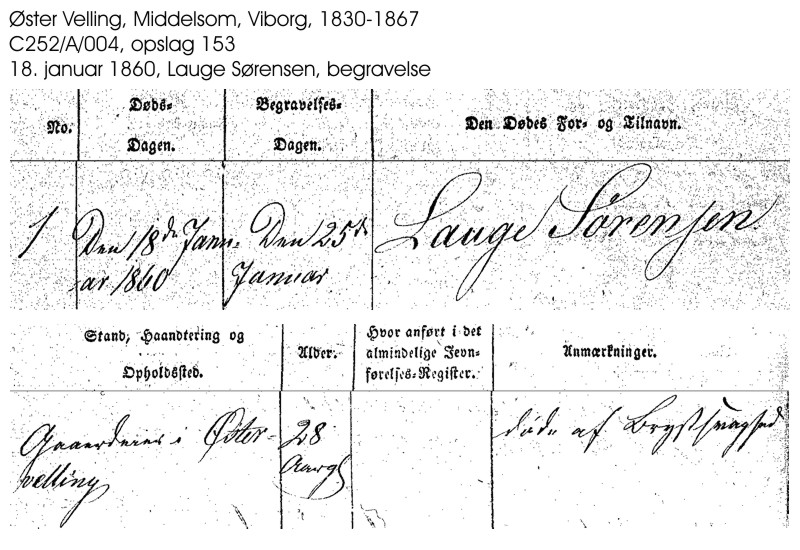 Øster Velling, Middelsom, Viborg, 1830-1867
C252/A/004, opslag 153
18. januar 1860, Lauge Sørensen, begravelse
No.
Døds-
Dagen.
Begravelses-
Dagen.
Den Dødes For- og Tilnavn.
1
Den 18de Janu-
ar 1860
Den 25de
Januar
Lauge Sørensen.
Stand, Haandtering og
Opholdssted.
Alder.
Hvor anført i det
almindelige Jevn-
førelses-Register.
Anmærkninger.
Gaardeier i Øster-
velling
28
Aarg
døde af Brystsvaghed